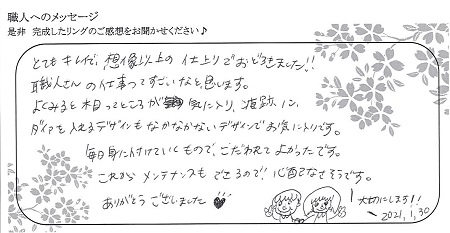 職人へのメッセージ
是非 完成したリングのご感想をお聞かせください♪
とてもキレイで、想像以上の仕上りでおどろきました!!
職人さんの仕事ってすごいなと思います。
よくみると木目ってところが気に入り、波跡に、
ダイヤを入れるデザインもなかなかないデザインでお気に入りです。
毎日身に付けていくもので、こだわれてよかったです。
これからメンテナンスもできるので! 心配なさそうです。
ありがとうございました
大切にします!!
2021,1,30